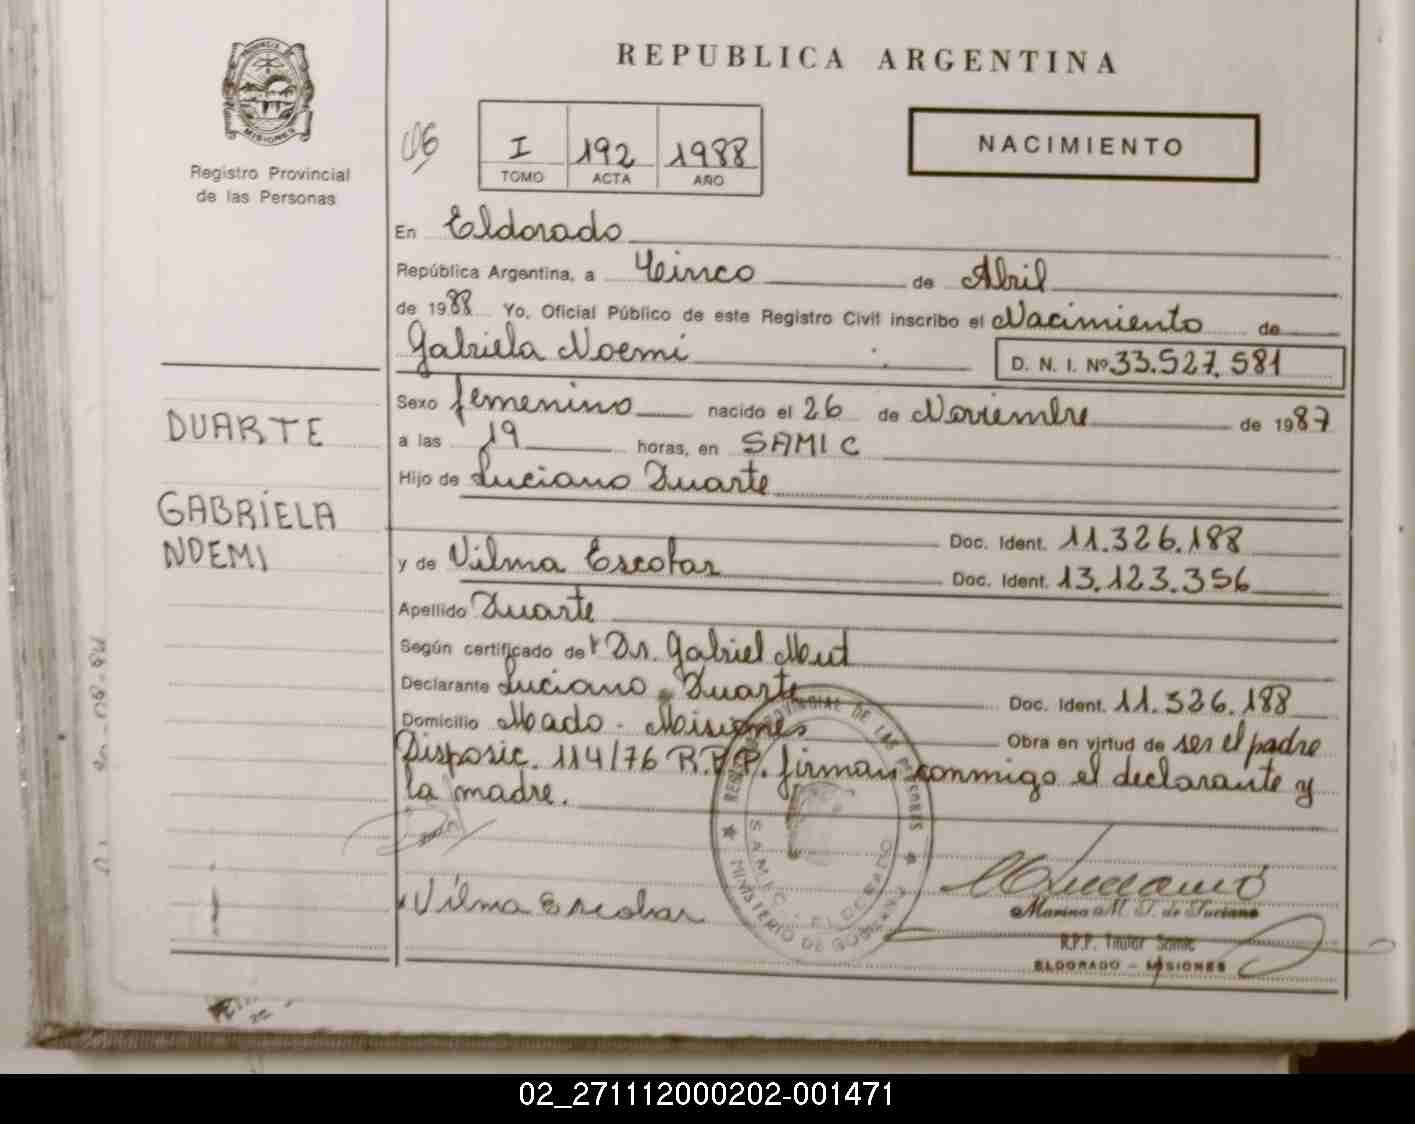 REPUBLICA ARGENTINA
PROVINCIA DE MISIONES
Registro Provincial
de las Personas
06
I 192 1988
TOMO ACTA AÑO
NACIMIENTO
En Eldorado
República Argentina, a Cinco de Abril
de 1988 Yo, Oficial Público de este Registro Civil inscribo el Nacimiento de
Gabriela Noemi D. N. I. Nº 33.527.581
Sexo femenino nacido el 26 de Noviembre de 1987
a las 19 horas, en SAMIC
Hijo de Luciano Duarte
Doc. Ident. 11.326.188
y de Vilma Escobar
Doc. Ident. 13.123.356
Apellido Duarte
Según certificado de Dr. Gabriel
Declarante Luciano Duarte Doc. Ident. 11.326.188
Domicilio Mado - Misiones Obra en virtud de ser el padre
Disposic. 114/76 R.P.P. firman conmigo el declarante y
la madre.
DUARTE
GABRIELA
NOEMI
Vilma Escobar
REGISTRO PROVINCIAL DE LAS PERSONAS
MINISTERIO DE GOBIERNO
SAMIC - ELDORADO
Marina M. T. de Luciano
R.P.P. Titular Samic
ELDORADO - MISIONES
02_271112000202-001471